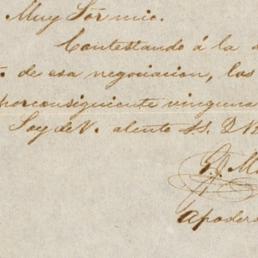 Muy Sor mio.
Contestando á la
de esa negociacion, las
porconsiguiente ninguna
Soy de V. atento S. S.
Apoder